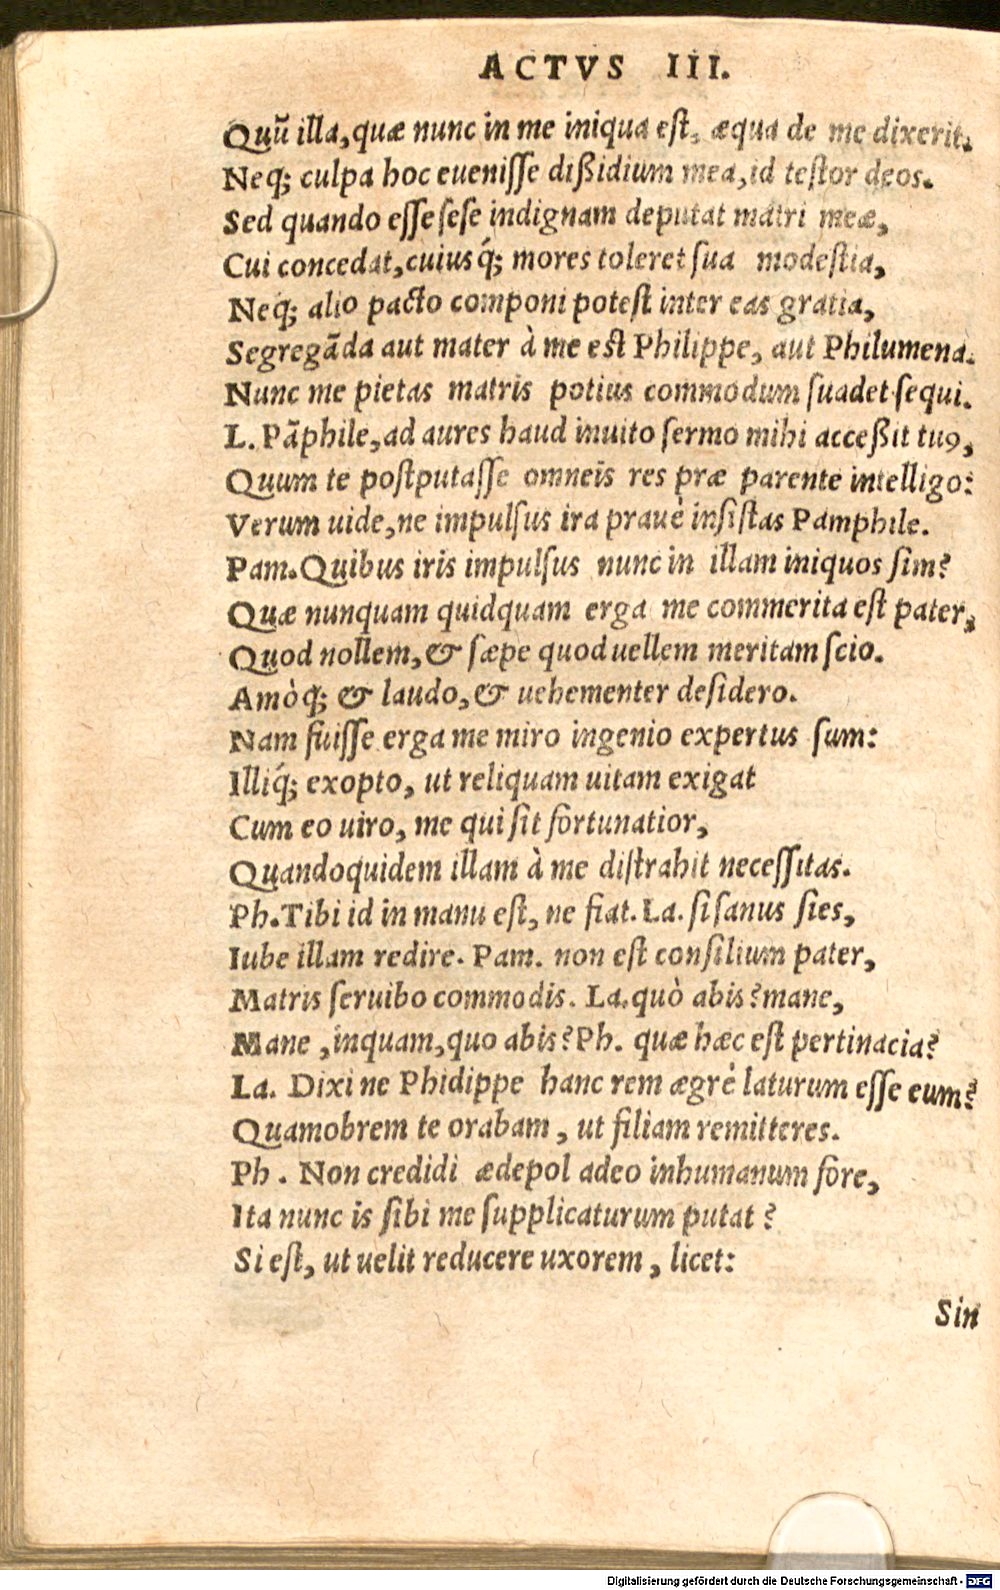 ACTVS III.
Quū illa, quæ nunc in me iniqua eſt, æqua de me dixerit.
Neq; culpa hoc eueniſſe dißidium mea, id teſtor deos.
Sed quando eſſe ſeſe indignam deputat matri meæ,
Cui concedat, cuiusq́; mores toleret ſua modeſtia,
Neq; alio pacto componi poteſt inter eas gratia,
Segregāda aut mater à me eſt Philippe, aut Philumena.
Nunc me pietas matris potius commodum ſuadet ſequi.
L. Pāphile, ad aures haud inuito ſermo mihi acceßit tuꝰ,
Quum te poſtputaſſe omneis res præ parente intelligo:
Verum uide, ne impulſus ira prauè inſiſtas Pamphile.
Pam. Quibus iris impulſus nunc in illam iniquos ſim?
Quæ nunquam quidquam erga me commerita eſt pater,
Quod nollem, & ſæpe quod uellem meritam ſcio.
Amòq; & laudo, & uehementer deſidero.
Nam fuiſſe erga me miro ingenio expertus ſum:
Illiq́; exopto, ut reliquam uitam exigat
Cum eo uiro, me qui ſit fortunatior,
Quandoquidem illam à me diſtrahit neceſſitas.
Ph. Tibi id in manu eſt, ne fiat. La. ſi ſanus ſies,
Iube illam redire. Pam. non eſt conſilium pater,
Matris ſeruibo commodis. La. quò abis? mane,
Mane, inquam, quo abis? Ph. quæ hæc eſt pertinacia?
La. Dixi ne Phidippe hanc rem ægrè laturum eſſe eum?
Quamobrem te orabam, ut filiam remitteres.
Ph. Non credidi ædepol adeo inhumanum fore,
Ita nunc is ſibi me ſupplicaturum putat?
Si eſt, ut uelit reducere uxorem, licet:
Sin
Digitalisierung gefördert durch die Deutsche Forschungsgemeinschaft - DFG